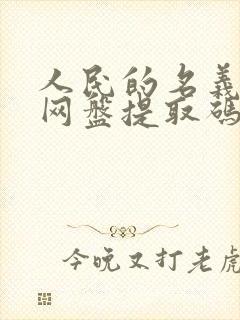 人民的名義
网盤提取碼
今晚又打老虎